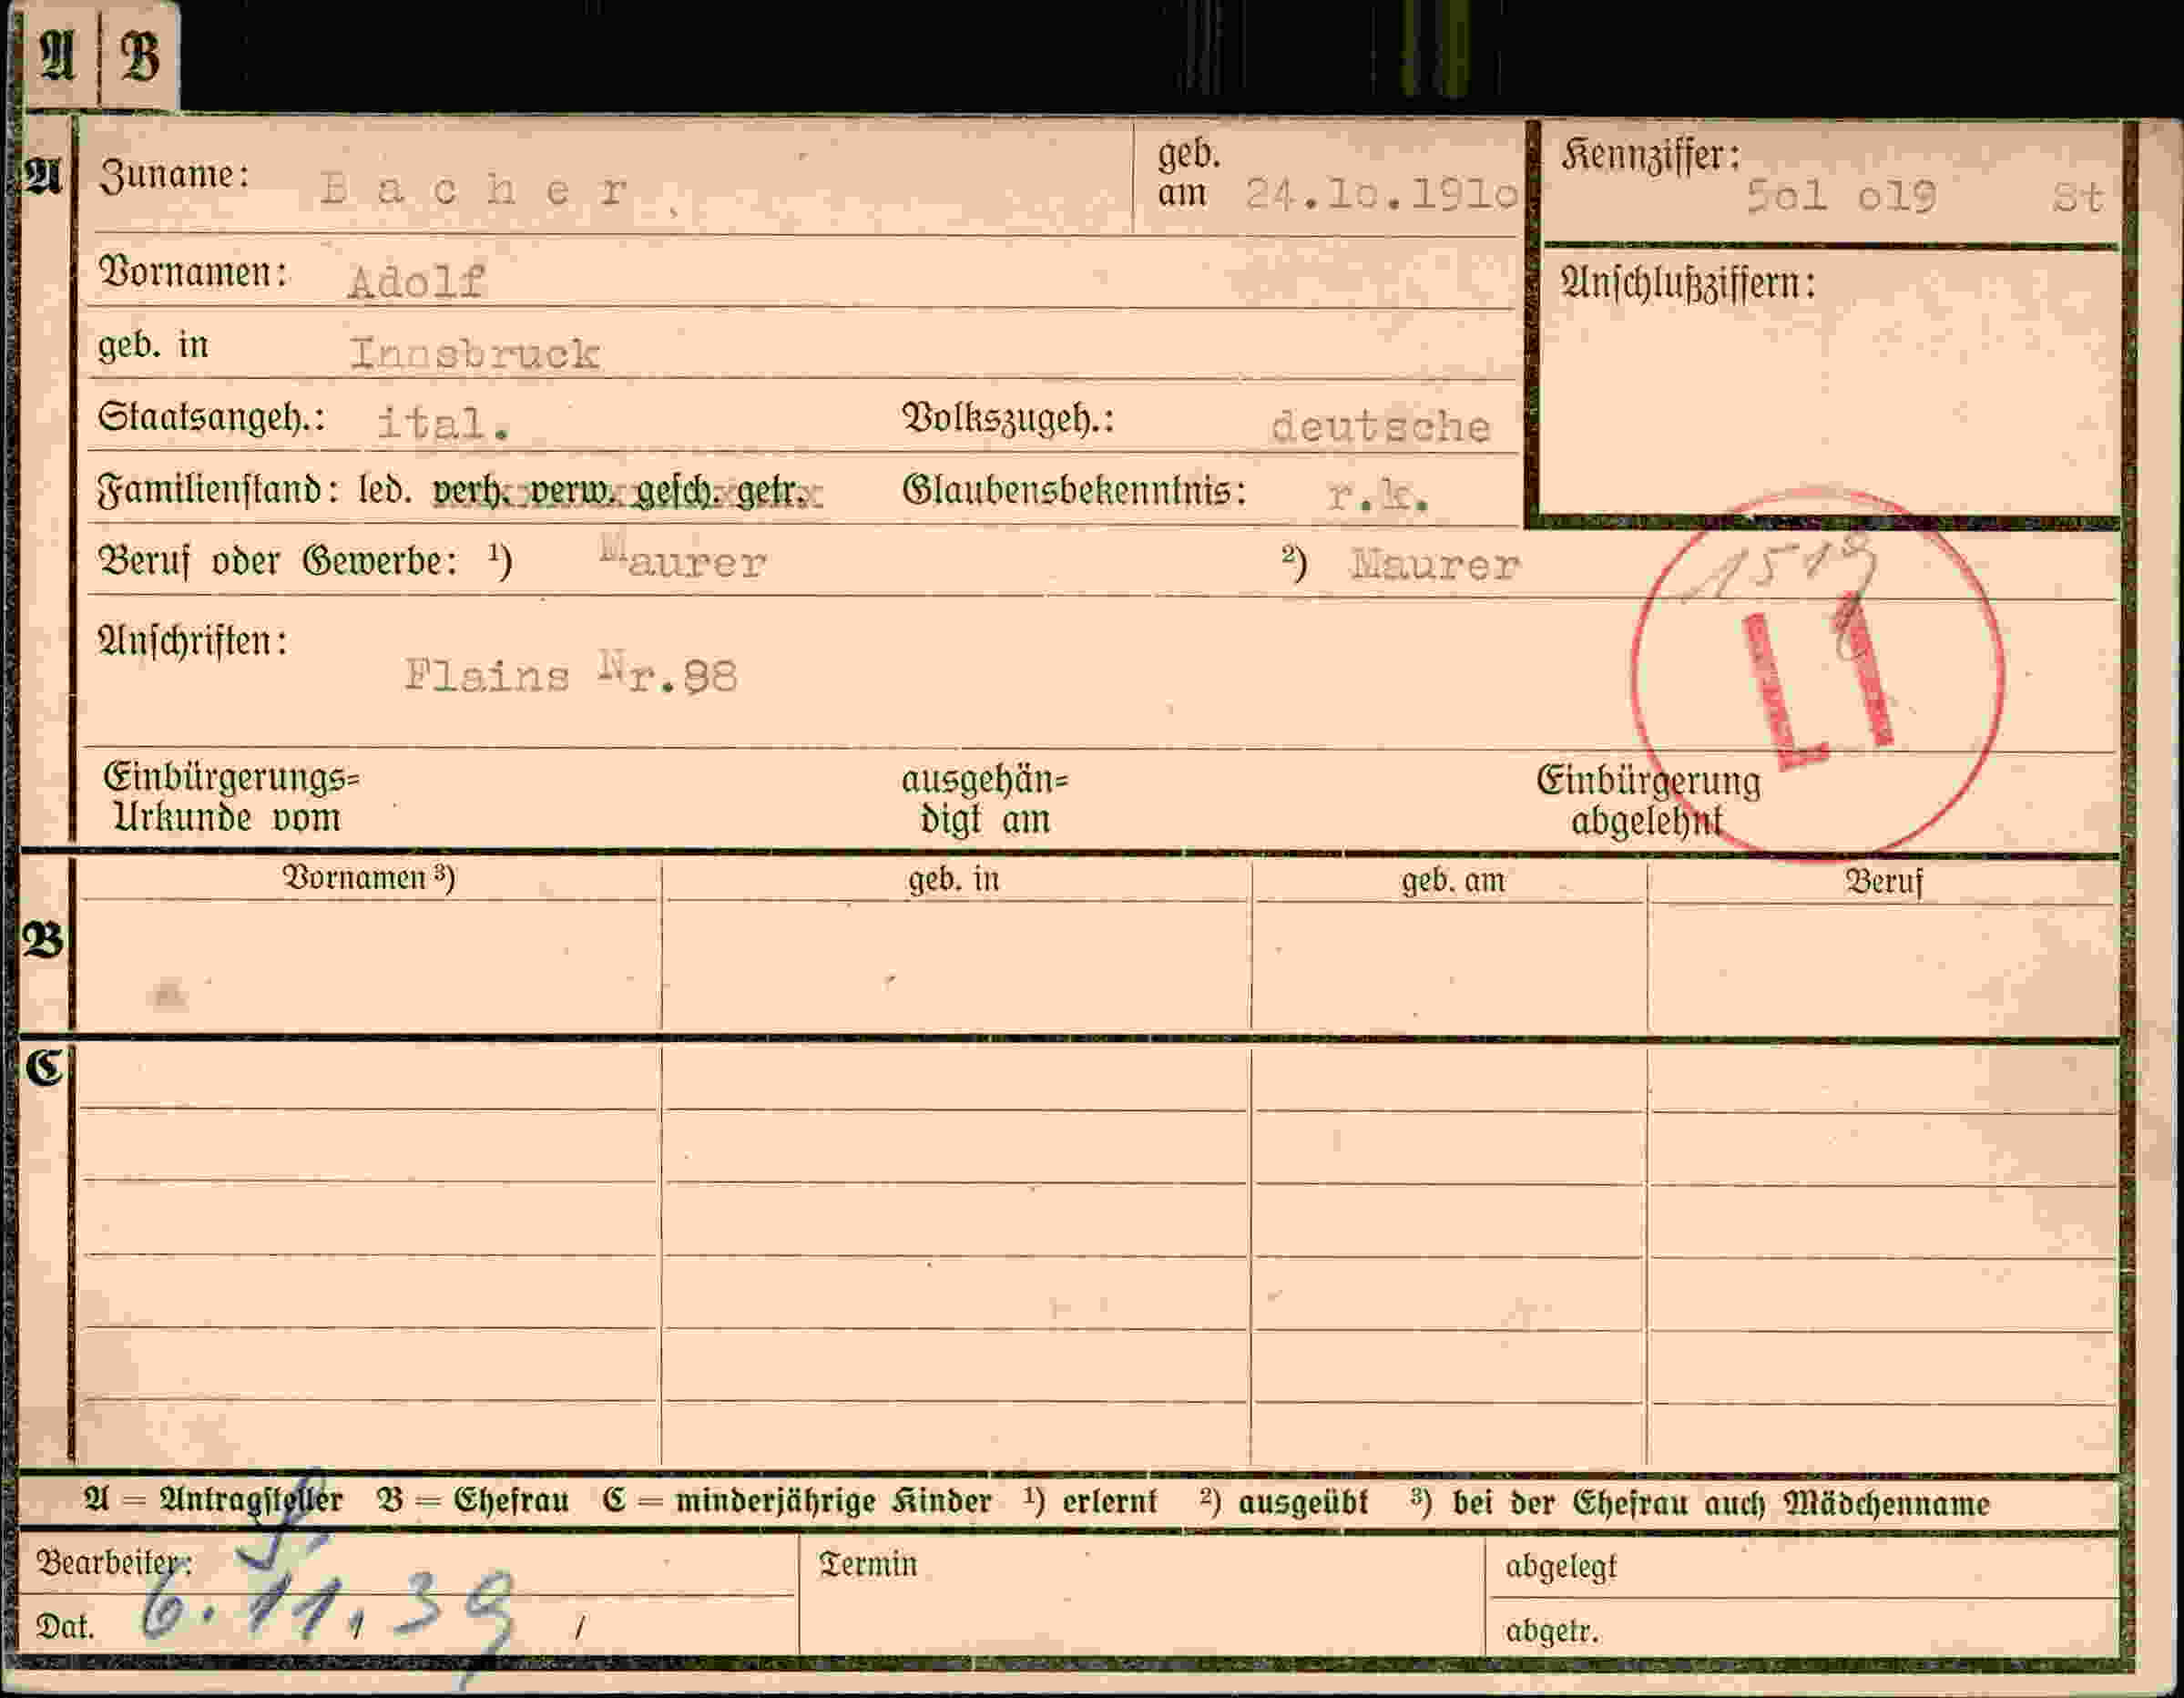 A | B
A
Zuname: Bacher
geb. am 24.1o.191o
Kennziffer: 5o1 o19 St
Vornamen: Adolf
Anschlußziffern:
geb. in Innsbruck
Staatsangeh.: ital. Volkszugeh.: deutsche
Familienstand: led. verh. verw. gesch. getr. Glaubensbekenntnis: r.k.
Beruf oder Gewerbe: ¹) Maurer ²) Maurer
1519
Anschriften:
Flains Nr.98
Einbürgerungs= ausgehän= Einbürgerung
Urkunde vom digt am abgelehnt
Vornamen ³) geb. in geb. am Beruf
B
C
A = Antragsteller B = Ehefrau C = minderjährige Kinder ¹) erlernt ²) ausgeübt ³) bei der Ehefrau auch Mädchenname
Bearbeiter: Termin abgelegt
Dat. 6.11.39 / abgetr.